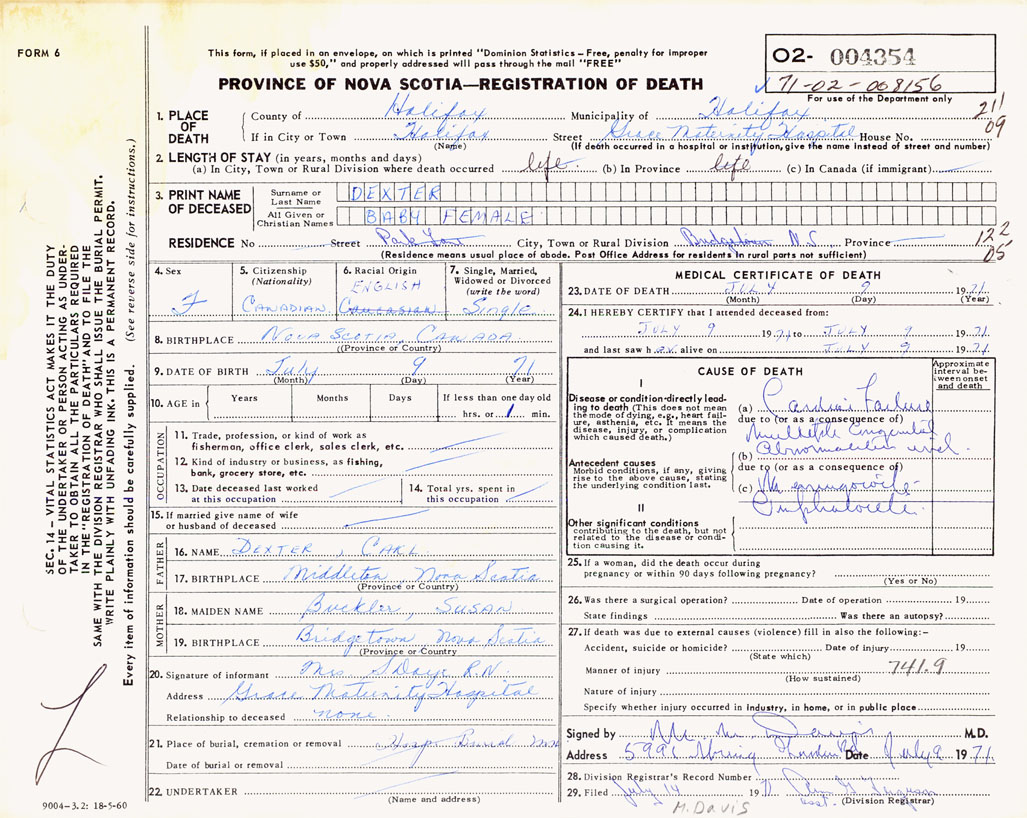 FORM 6
This form, if placed in an envelope, on which is printed "Dominion Statistics – Free, penalty for improper
use $50," and properly addressed will pass through the mail "FREE"
PROVINCE OF NOVA SCOTIA—REGISTRATION OF DEATH
O2- 004354
71-02-008156
For use of the Department only
211
09
1. PLACE OF DEATH
County of Halifax Municipality of Halifax
If in City or Town Halifax Street Grace Maternity Hospital House No.
(Name) (If death occurred in a hospital or institution, give the name instead of street and number)
2. LENGTH OF STAY (in years, months and days)
(a) In City, Town or Rural Division where death occurred life (b) In Province life (c) In Canada (if immigrant)
3. PRINT NAME OF DECEASED
Surname or Last Name DEXTER
All Given or Christian Names BABY FEMALE
RESIDENCE No Street Park Lane City, Town or Rural Division Bridgetown N.S. Province
122
05
(Residence means usual place of abode. Post Office Address for residents in rural parts not sufficient)
4. Sex F
5. Citizenship (Nationality) CANADIAN
6. Racial Origin ENGLISH CAUCASIAN
7. Single, Married, Widowed or Divorced (write the word) Single
8. BIRTHPLACE NOVA SCOTIA, CANADA
(Province or Country)
9. DATE OF BIRTH July 9 71
(Month) (Day) (Year)
10. AGE in Years Months Days If less than one day old
hrs. or min.
OCCUPATION
11. Trade, profession, or kind of work as
fisherman, office clerk, sales clerk, etc.
12. Kind of industry or business, as fishing,
bank, grocery store, etc.
13. Date deceased last worked
at this occupation
14. Total yrs. spent in
this occupation
15. If married give name of wife
or husband of deceased
FATHER
16. NAME DEXTER, CARL
17. BIRTHPLACE Middleton, Nova Scotia
(Province or Country)
MOTHER
18. MAIDEN NAME Buckler, SUSAN
19. BIRTHPLACE Bridgetown, Nova Scotia
(Province or Country
20. Signature of informant Mrs. R.N.
Address Grace Maternity Hospital
Relationship to deceased none.
21. Place of burial, cremation or removal Hosp Burial
Date of burial or removal
22. UNDERTAKER
(Name and address)
MEDICAL CERTIFICATE OF DEATH
23. DATE OF DEATH JULY 9 1971
(Month) (Day) (Year)
24. I HEREBY CERTIFY that I attended deceased from:
JULY 9 1971 to JULY 9 1971
and last saw her alive on JULY 9 1971
CAUSE OF DEATH
Approximate interval between onset and death
I
Disease or condition directly leading to death (This does not mean the mode of dying, e.g., heart failure, asthenia, etc. It means the disease, injury, or complication which caused death.)
(a) Cardiac Failure
due to (or as a consequence of)
Multiple Congenital
(b) Abnormalities
Antecedent causes
Morbid conditions, if any, giving rise to the above cause, stating the underlying condition last.
due to (or as a consequence of)
(c) Meningocele
II
Other significant conditions
contributing to the death, but not related to the disease or condition causing it.
25. If a woman, did the death occur during
pregnancy or within 90 days following pregnancy?
(Yes or No)
26. Was there a surgical operation? Date of operation 19
State findings Was there an autopsy?
27. If death was due to external causes (violence) fill in also the following:–
Accident, suicide or homicide? Date of injury 19
(State which)
Manner of injury 741.9
(How sustained)
Nature of injury
Specify whether injury occurred in industry, in home, or in public place
Signed by Davis M.D.
Address 5991 Date July 9 1971
28. Division Registrar's Record Number
29. Filed July 14 1971
(Division Registrar)
M. DAVIS
SEC. 14 – VITAL STATISTICS ACT MAKES IT THE DUTY
OF THE UNDERTAKER OR PERSON ACTING AS UNDER-
TAKER TO OBTAIN ALL THE PARTICULARS REQUIRED
IN THE "REGISTRATION OF DEATH" AND TO FILE THE
SAME WITH THE DIVISION REGISTRAR WHO SHALL ISSUE THE BURIAL PERMIT.
WRITE PLAINLY WITH UNFADING INK. THIS IS A PERMANENT RECORD.
Every item of information should be carefully supplied. (See reverse side for instructions.)
9004–3.2: 18-5-60